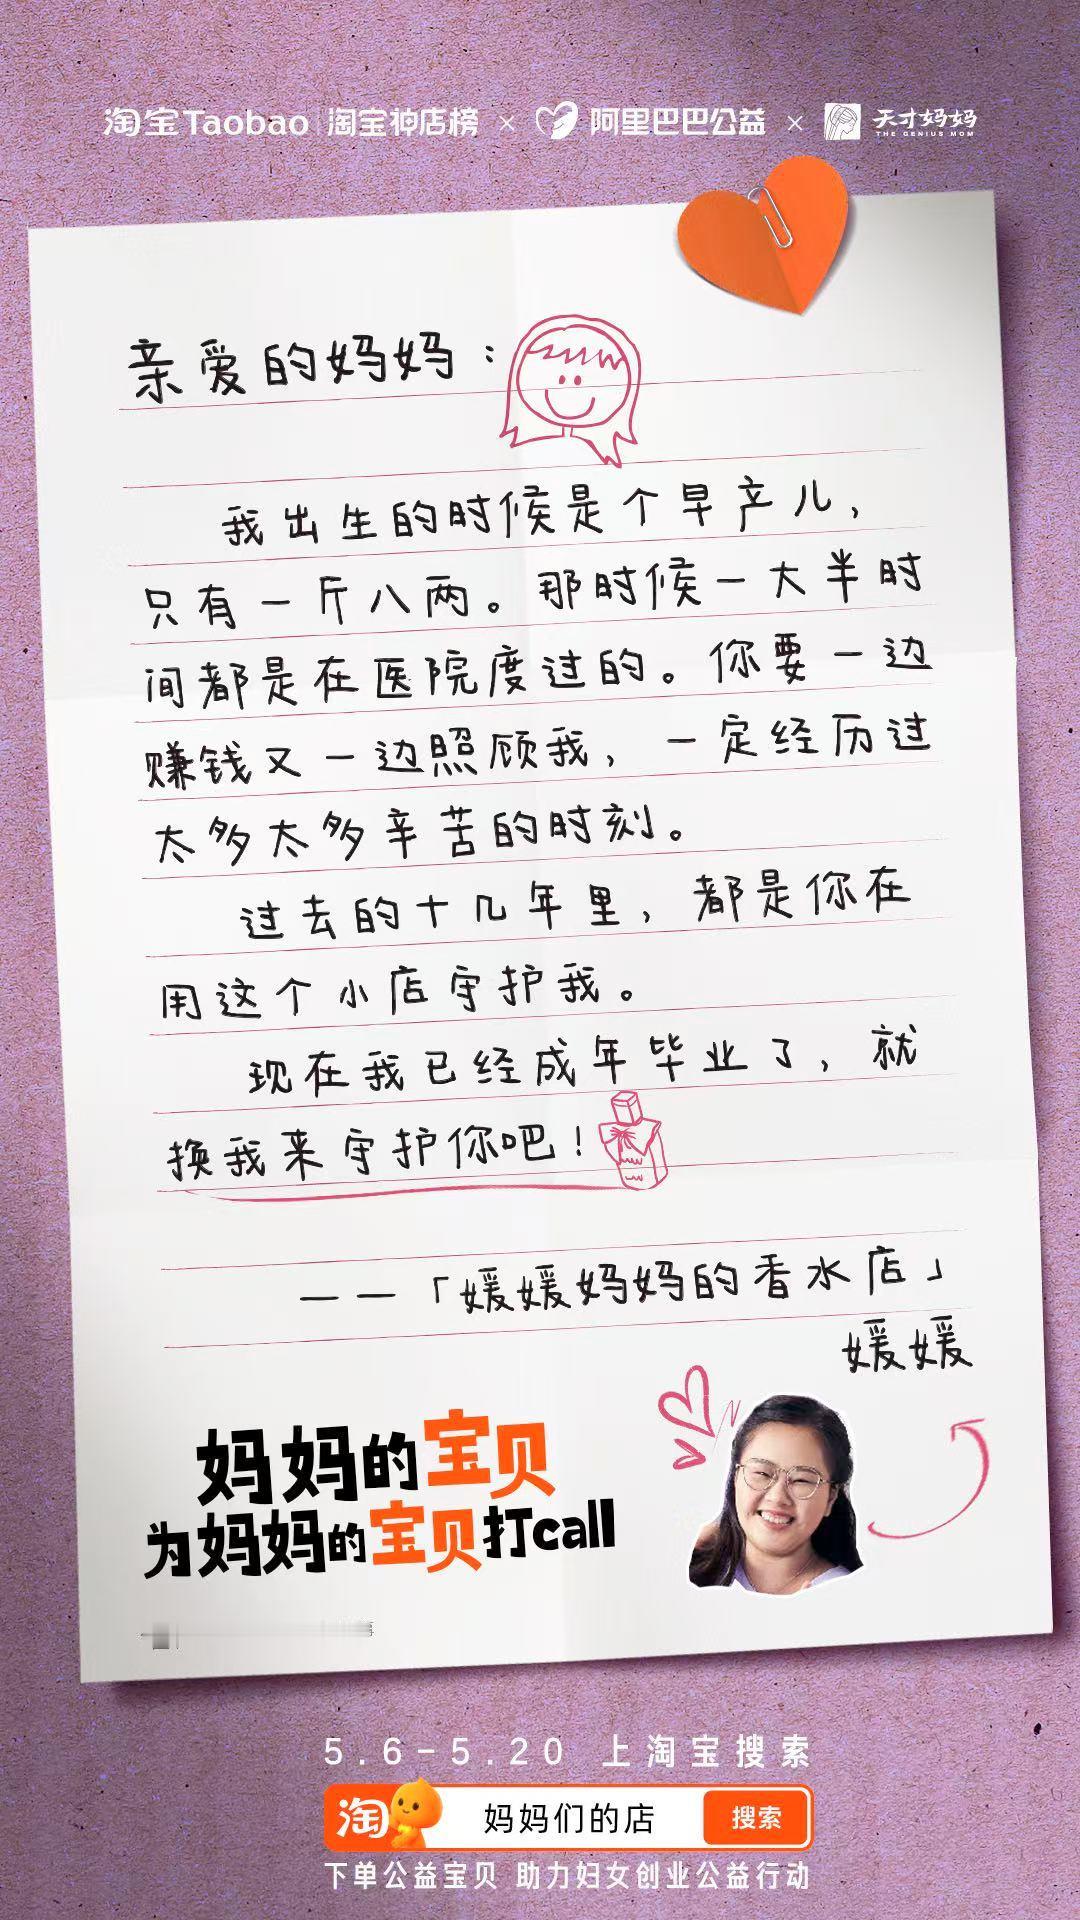 淘宝Taobao|淘宝神店榜 × 阿里巴巴公益 × 天才妈妈
THE GENIUS MOM
亲爱的妈妈：
我出生的时候是个早产儿，
只有一斤八两。那时候一大半时
间都是在医院度过的。你要一边
赚钱又一边照顾我，一定经历过
太多太多辛苦的时刻。
过去的十几年里，都是你在
用这个小店守护我。
现在我已经成年毕业了，就
换我来守护你吧！
——「媛媛妈妈的香水店」
媛媛
妈妈的宝贝
为妈妈的宝贝打call
5.6-5.20 上淘宝搜索
淘 妈妈们的店 搜索
下单公益宝贝 助力妇女创业公益行动